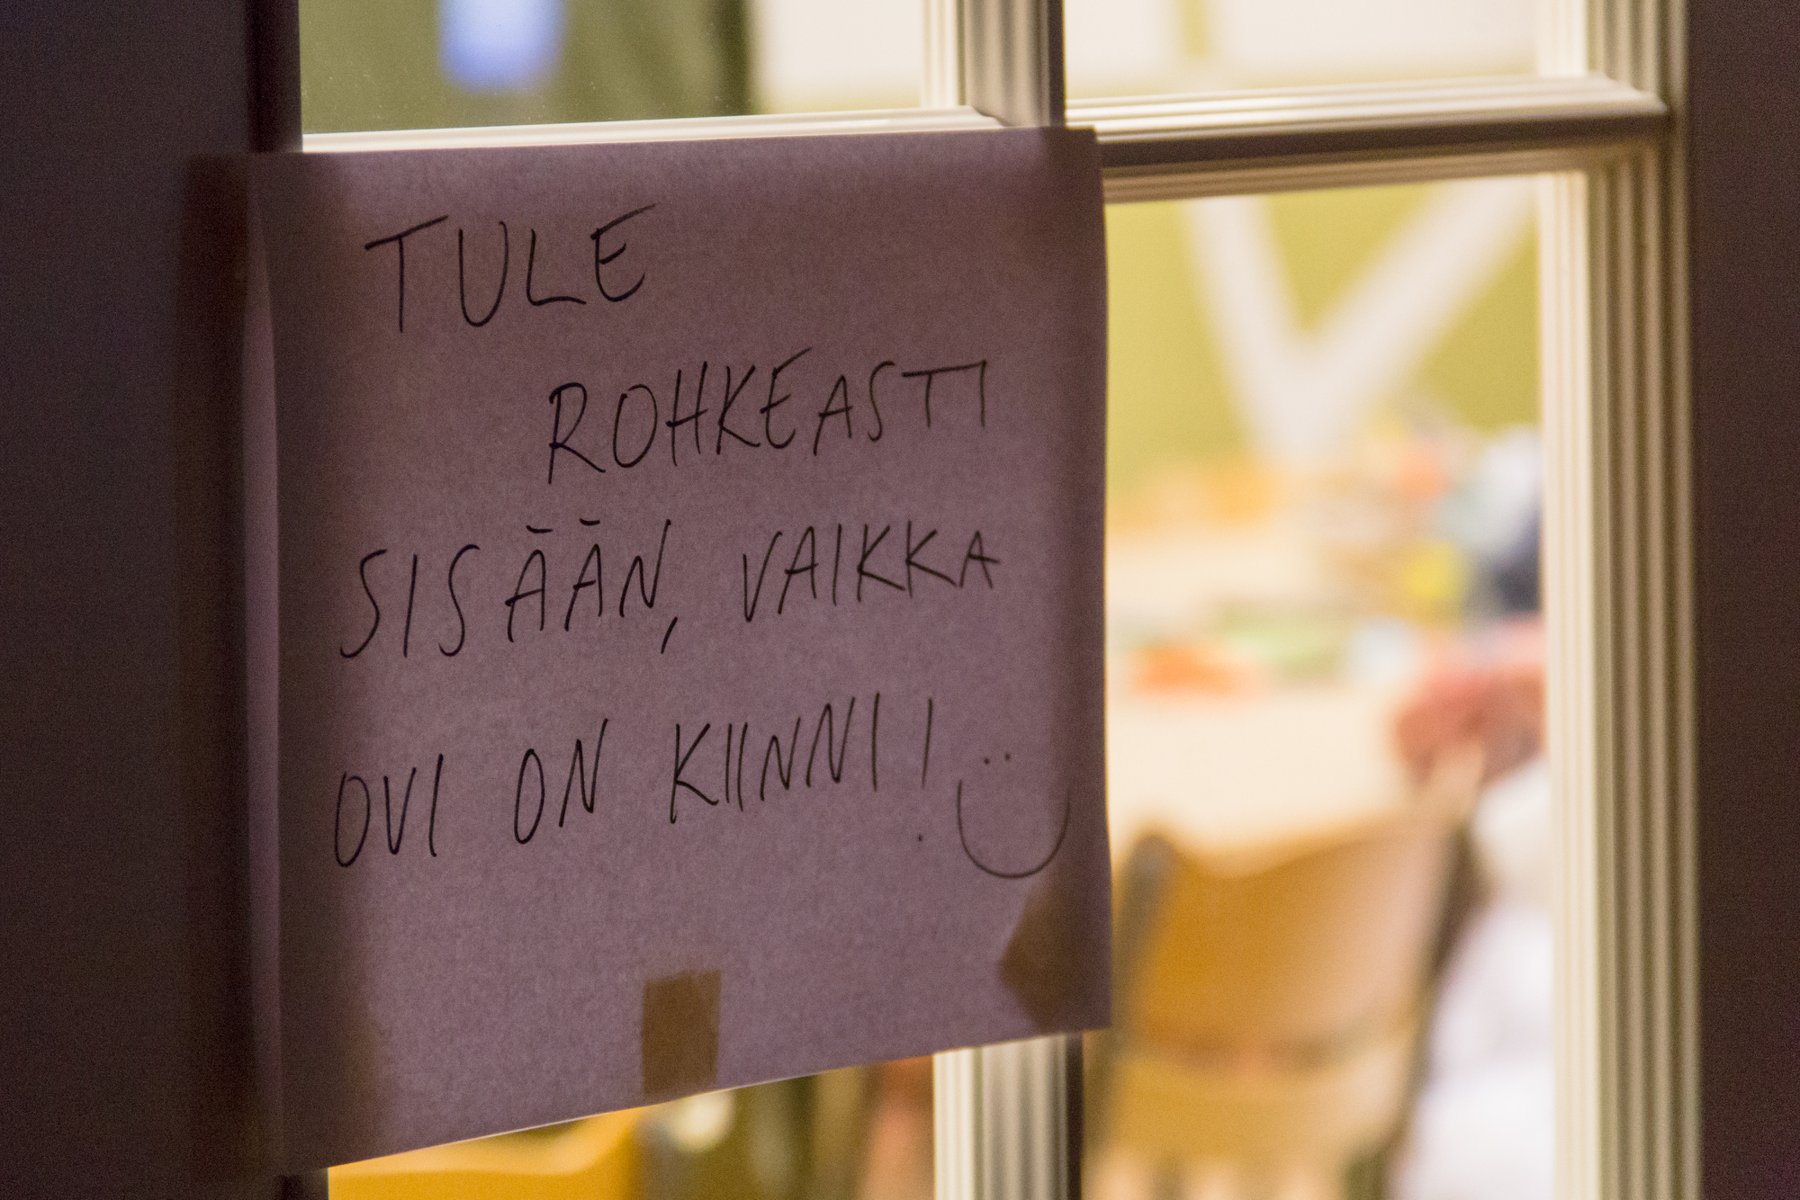 TULE
ROHKEASTI
SISÄÄN, VAIKKA
OVI ON KIINNI!